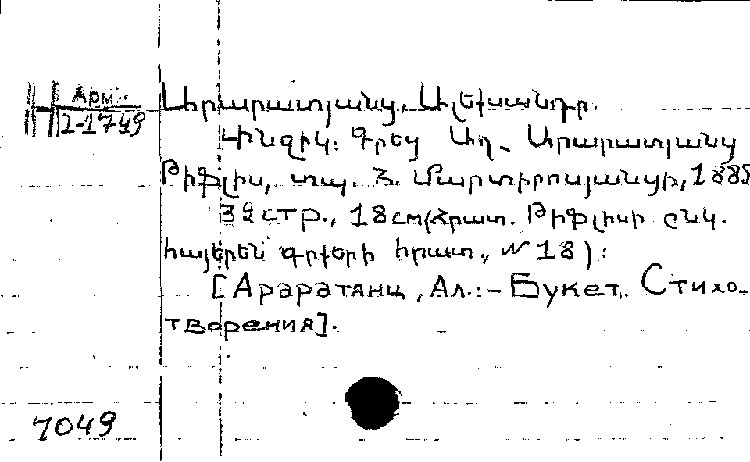 Арм.
2-1749
Արարատյանց, Ալեխանդր.
Փնջիկ: Գրեց Ալ. Արարատյանց
Թիֆլիս, տպ. Յ. Մարտիրոսյանցի, 188
32 стр., 18 см (Հրատ. Թիֆլիսի ընկ.
հայերեն գրքերի հրատ., № 13):
[Араратянц, Ал.:- Букет. Стихо-
творения].
7049